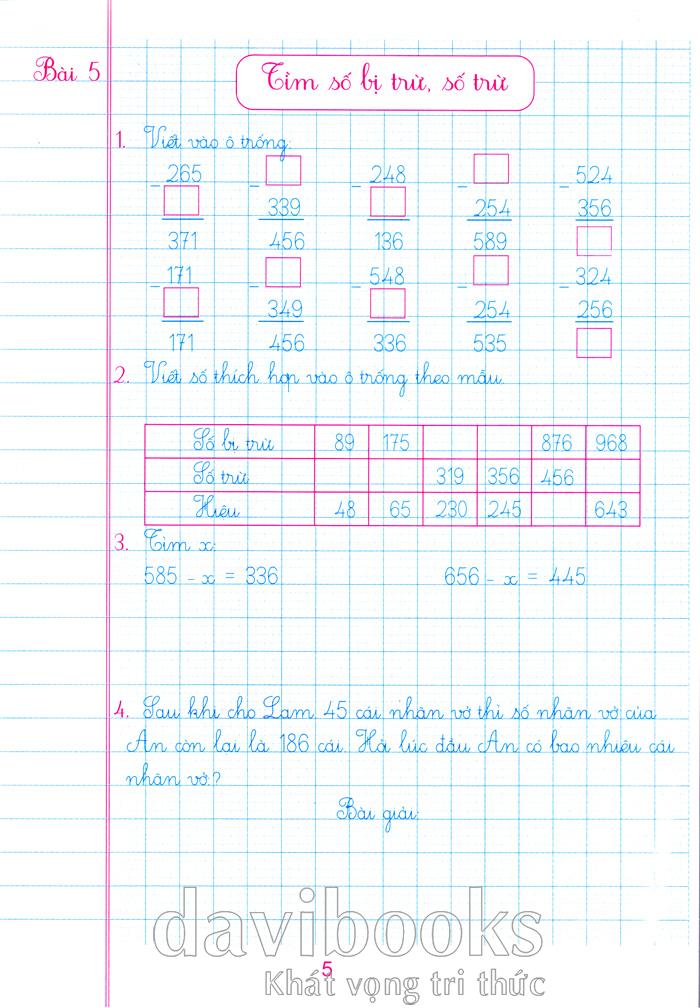 Bài 5
Tìm số bị trừ, số trừ
1. Viết vào ô trống:
_ 265 _ _ 248 _ _ 524
339 254 356
371 456 136 589
_ 171 _ _ 548 _ _ 324
349 254 256
171 456 336 535
2. Viết số thích hợp vào ô trống theo mẫu.
Số bị trừ 89 175 876 968
Số trừ 319 356 456
Hiệu 48 65 230 245 643
3. Tìm x:
585 - x = 336 656 - x = 445
4. Sau khi cho Lam 45 cái nhãn vở thì số nhãn vở của
An còn lại là 186 cái. Hỏi lúc đầu An có bao nhiêu cái
nhãn vở?
Bài giải:
davibooks
5
Khát vọng tri thức